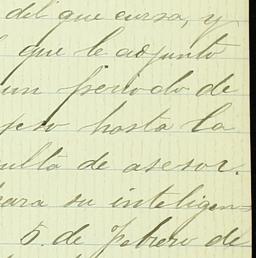 del que cursa, y
que le adjunto
un periodo de
peso hasta la
ulta de asesor.
para su inteligen=
5. de Febrero de